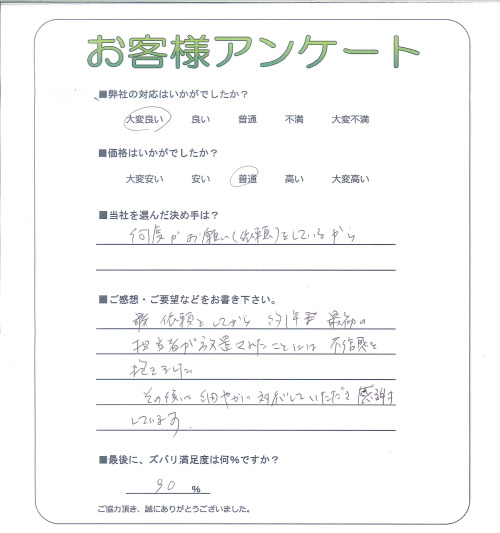 お客様アンケート
■弊社の対応はいかがでしたか？
大変良い 良い 普通 不満 大変不満
■価格はいかがでしたか？
大変安い 安い 普通 高い 大変高い
■当社を選んだ決め手は？
何度かお願い(依頼)をしているから
■ご感想・ご要望などをお書き下さい。
依頼をしてから 約1年 最初の
担当者が放置されたことには 不信感を
抱きました
その後は 細やかに対応していただき 感謝を
しています。
■最後に、ズバリ満足度は何%ですか？
90 %
ご協力頂き、誠にありがとうございました。